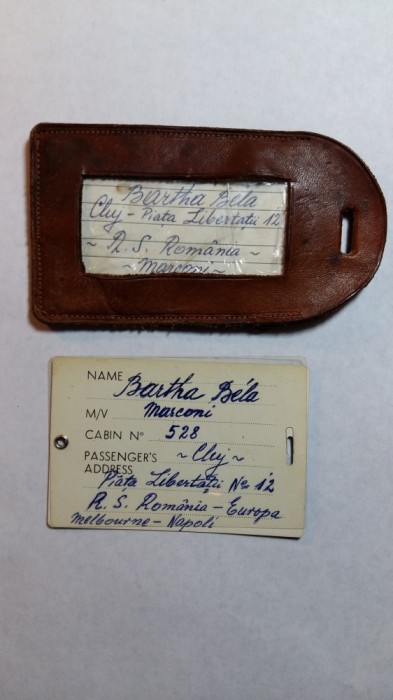 Bartha Béla
Cluj - Piața Libertații 12
~ R. S. România ~
~ Marconi ~
NAME Bartha Béla
M/V Marconi
CABIN Nº 528
PASSENGER'S ADDRESS ~ Cluj ~
Piața Libertații Nº 12
R. S. România - Europa
Melbourne - Napoli